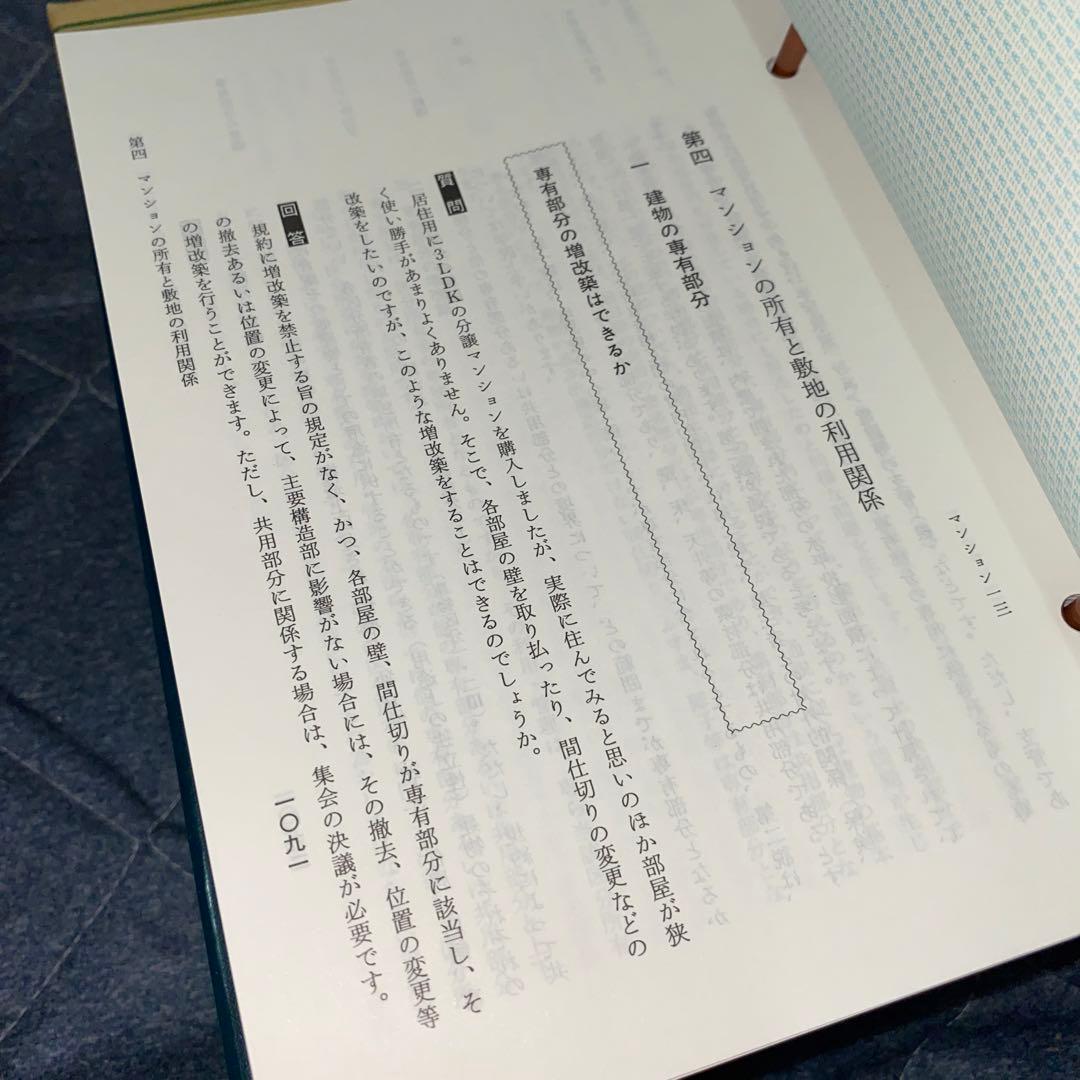 マンション 一三
第四　マンションの所有と敷地の利用関係
一　建物の専有部分
専有部分の増改築はできるか
質問
居住用に３ＬＤＫの分譲マンションを購入しましたが、実際に住んでみると思いのほか部屋が狭
く使い勝手があまりよくありません。そこで、各部屋の壁を取り払ったり、間仕切りの変更などの
改築をしたいのですが、このような増改築をすることはできるのでしょうか。
回答
規約に増改築を禁止する旨の規定がなく、かつ、各部屋の壁、間仕切りが専有部分に該当し、そ
の撤去あるいは位置の変更によって、主要構造部に影響がない場合には、その撤去、位置の変更等
の増改築を行うことができます。ただし、共用部分に関係する場合は、集会の決議が必要です。
第四　マンションの所有と敷地の利用関係
一〇九一